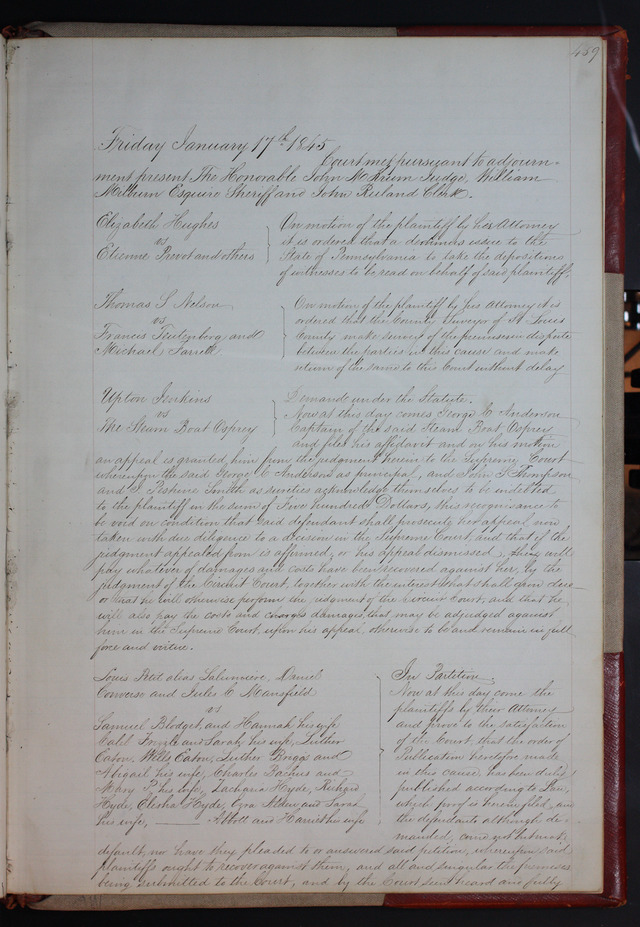 459
Friday January 17th 1845
Court met pursuant to adjourn-
ment present The Honorable John M Krum Judge, William
Milburn Esquire Sheriff and John Ruland Clerk.
Elizabeth Hughes
vs
Etienne Prevot and others
On motion of the plaintiff by her Attorney
it is ordered that a dedimus issue to the
State of Pennsylvania to take the depositions
of witnesses to be read on behalf of said plaintiff.
Thomas S Nelson
vs
Francis Teutenberg and
Michael Farrell
On motion of the plaintiff by his Attorney it is
ordered that the County Surveyor of St Louis
County make survey of the premises in dispute
between the parties in this cause and make
return of the same to this Court without delay
Upton Jenkins
vs
The Steam Boat Osprey
Demande under the Statute.
Now at this day comes George C Anderson
Captain of the said Steam Boat Osprey
and files his affidavit and on his motion
an appeal is granted him from the judgment herein to the Supreme Court
whereupon the said George C Anderson as principal, and John S Thompson
and J. Smith as sureties acknowledge themselves to be indebted
to the plaintiff in the sum of Five hundred Dollars, this recognisance to
be void on condition that said defendant shall prosecute her appeal now
taken with due diligence to a decision in the Supreme Court, and that if the
judgment appealed from is affirmed, or his appeal dismissed, will
pay whatever of damages and costs have been recovered against her, by the
judgment of the Circuit Court, together with the interest that shall grow due
or that he will otherwise perform the judgment of the Circuit Court, and that he
will also pay the costs and damages, that may be adjudged against
him in the Supreme Court, upon his appeal, otherwise to be and remain in full
force and virtue.
Louis Petit alias Lalumiere, Daniel
Converse and Jules C Mansfield
vs
Samuel Blodget, and Hannah his wife
and Sarah his wife, Luther
Eaton, Wells Eaton, Luther Briggs and
Abigail his wife, Charles Bachus and
Mary P his wife, Zacharia Hyde, Richard
Hyde, Elisha Hyde, Ezra Alden and Sarah
his wife, —— Abbott and Harriet his wife
In Partition
Now at this day come the
plaintiffs by their Attorney
and prove to the satisfaction
of the Court, that the order of
Publication heretofore made
in this cause, has been duly
published according to Law,
which proof is herein filed, and
the defendants although de-
manded, come not but make
default, nor have they pleaded to or answered said petition, wherefore said
plaintiffs ought to recover against them, and all and singular the premises
being submitted to the Court, and by the Court seen heard and fully